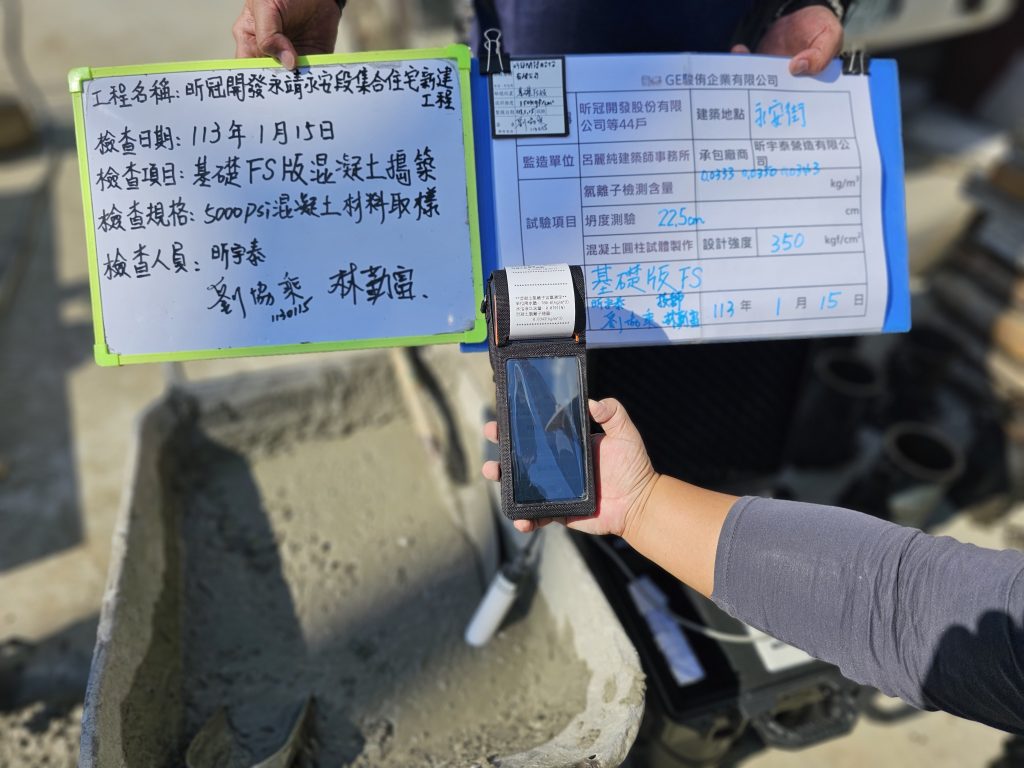 工程名稱: 昕冠開發永靖永安段集合住宅新建
工程
檢查日期: 113年1月15日
檢查項目: 基礎FS版混凝土搗築
檢查規格: 5000psi混凝土材料取樣
檢查人員: 昕宇泰
劉協乘 林勤富
1130115
GE駿侑企業有限公司
昕冠開發股份有限
公司等44戶
建築地點
永安街
監造單位
呂麗純建築師事務所
承包廠商
昕宇泰營造有限公
司
試驗項目
氯離子檢測含量
0.0353 0.0350 0.0343
kg/m³
坍度測驗
22.5cm
cm
混凝土圓柱試體製作
設計強度
350
kgf/cm²
基礎版FS
昕宇泰 技師
劉協乘 林勤富
113 年 1 月 15 日